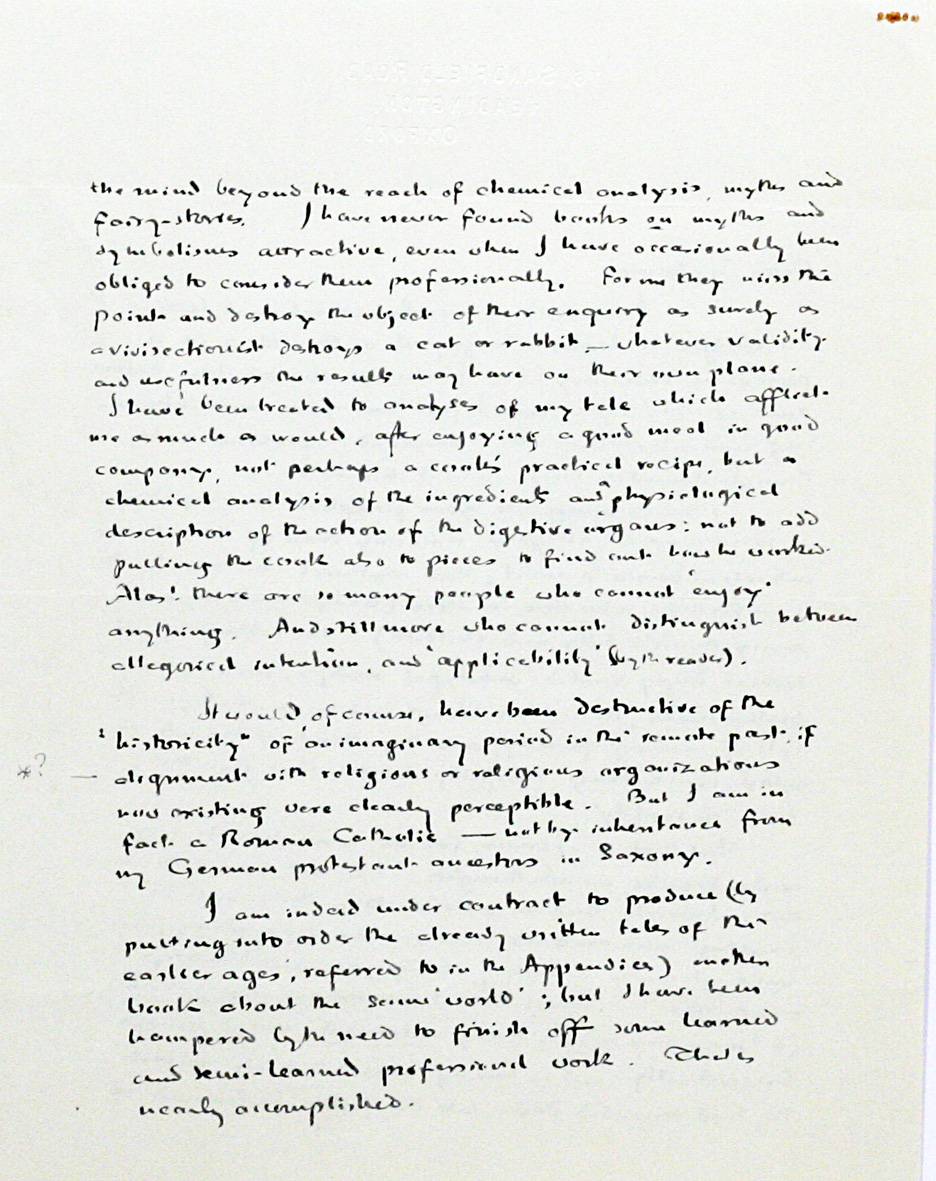 the mind beyond the reach of chemical analysis, myths and
fairy-stories. I have never found books on myths and
symbolisms attractive, even when I have occasionally been
obliged to consider them professionally. For me they miss the
point and destroy the object of their enquiry as surely as
a vivisectionist destroys a cat or rabbit — whatever validity
and usefulness the results may have on their own plane.
I have been treated to analyses of my tale which afflict
me as much as would, after enjoying a good meal in good
company, not perhaps a cook's practical recipe, but a
chemical analysis of the ingredients and a physiological
description of the action of the digestive organs: not to add
pulling the cook also to pieces to find out how he worked.
Alas! there are so many people who cannot 'enjoy'
anything. And still more who cannot distinguish between
allegorical intention, and 'applicability' (by the reader).
It would, of course, have been destructive of the
'historicity' of an imaginary period in the remote past, if
*? — alignment with religions or religious organizations
now existing were clearly perceptible. But I am in
fact a Roman Catholic — not by inheritance from
my German protestant ancestors in Saxony.
I am indeed under contract to produce (by
putting into order the already written tales of the
earlier ages, referred to in the Appendices) another
book about the same 'world'; but I have been
hampered by the need to finish off some learned
and semi-learned professional work. That is
nearly accomplished.